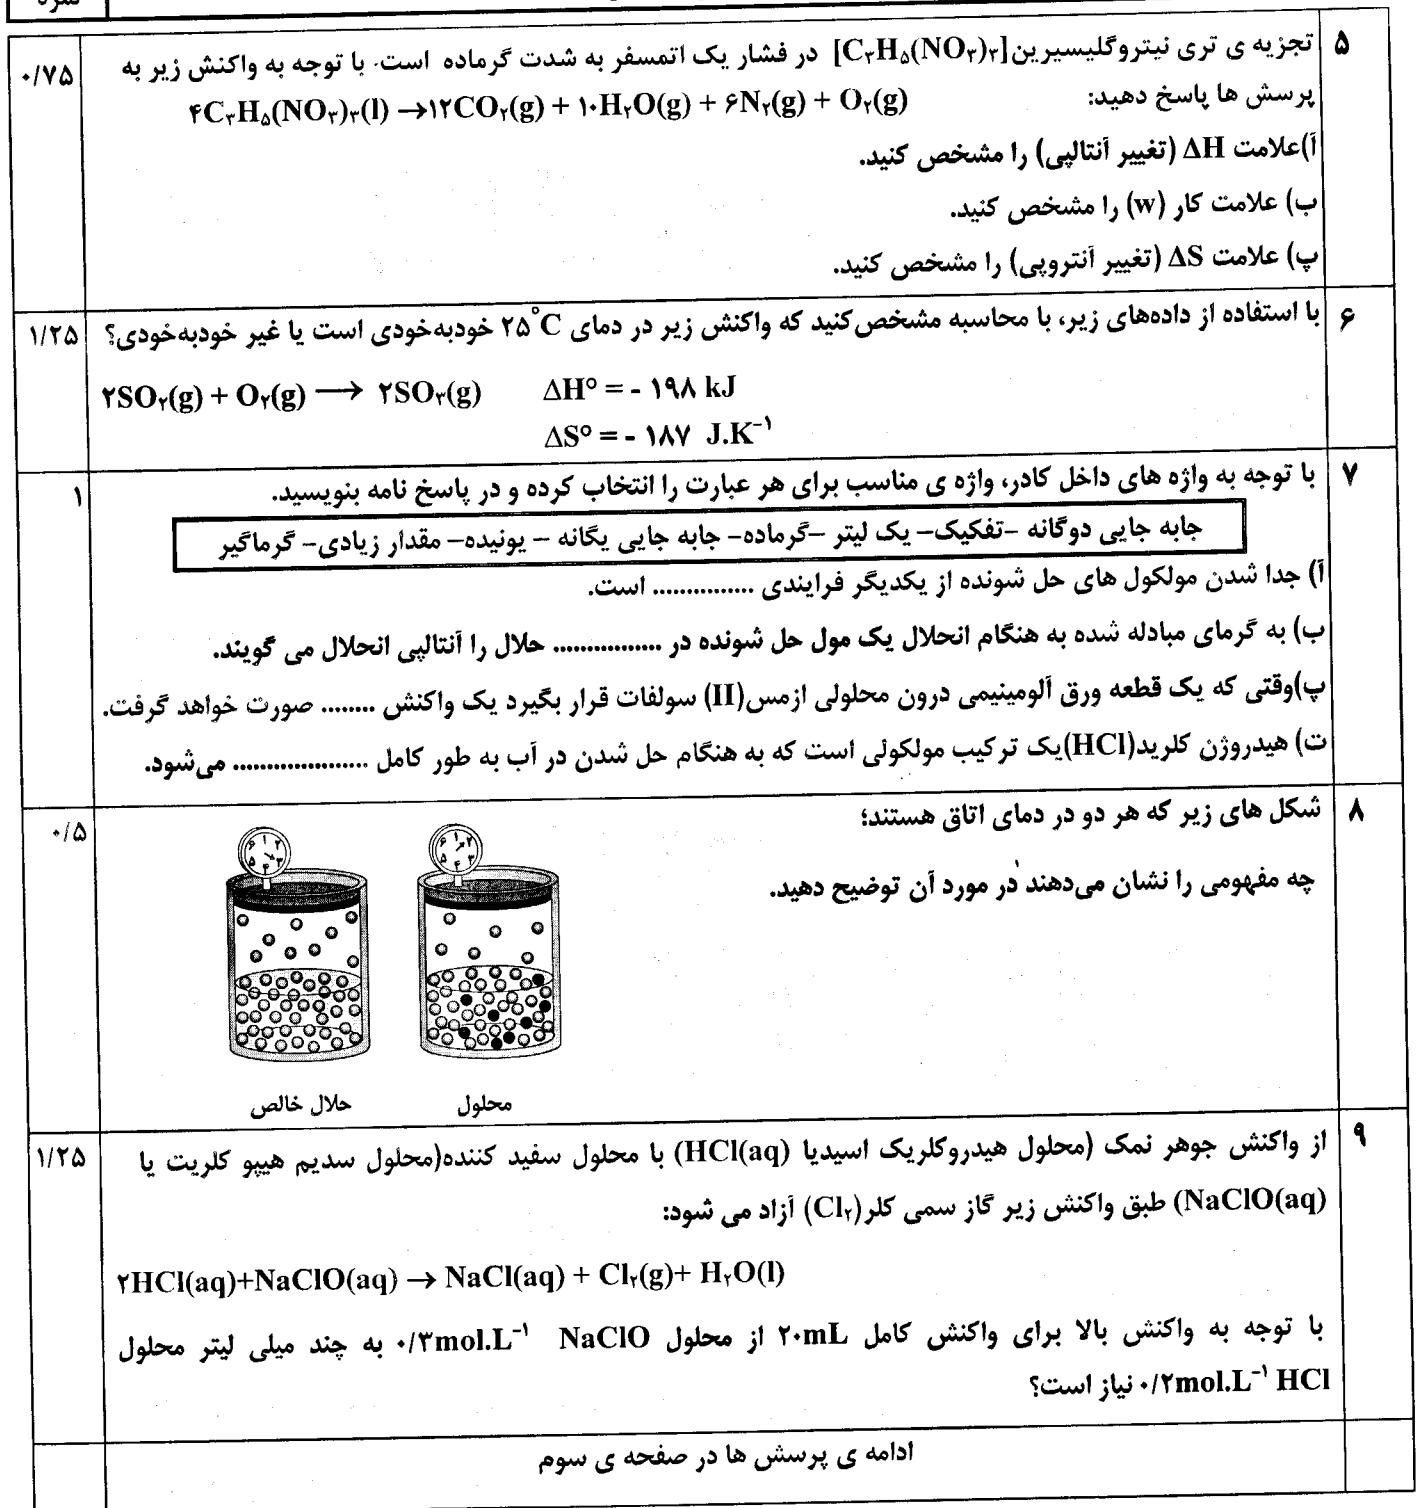 نمره
۵ تجزیه ی تری نیتروگلیسیرین[C۳H۵(NO۳)۳] در فشار یک اتمسفر به شدت گرماده است. با توجه به واکنش زیر به ۰/۷۵
پرسش ها پاسخ دهید: ۴C۳H۵(NO۳)۳(l) →۱۲CO۲(g) + ۱۰H۲O(g) + ۶N۲(g) + O۲(g)
آ)علامت ΔH (تغییر آنتالپی) را مشخص کنید.
ب) علامت کار (w) را مشخص کنید.
پ) علامت ΔS (تغییر آنتروپی) را مشخص کنید.
۶ با استفاده از داده‌های زیر، با محاسبه مشخص‌کنید که واکنش زیر در دمای ۲۵°C خودبه‌خودی است یا غیر خودبه‌خودی؟ ۱/۲۵
۲SO۲(g) + O۲(g) ⟶ ۲SO۳(g) ΔH° = - ۱۹۸ kJ
ΔS° = - ۱۸۷ J.K⁻¹
۷ با توجه به واژه های داخل کادر، واژه ی مناسب برای هر عبارت را انتخاب کرده و در پاسخ نامه بنویسید. ۱
جابه جایی دوگانه –تفکیک– یک لیتر –گرماده– جابه جایی یگانه – یونیده– مقدار زیادی– گرماگیر
آ) جدا شدن مولکول های حل شونده از یکدیگر فرایندی ............... است.
ب) به گرمای مبادله شده به هنگام انحلال یک مول حل شونده در ................ حلال را آنتالپی انحلال می گویند.
پ)وقتی که یک قطعه ورق آلومینیمی درون محلولی ازمس(II) سولفات قرار بگیرد یک واکنش ........ صورت خواهد گرفت.
ت) هیدروژن کلرید(HCl)یک ترکیب مولکولی است که به هنگام حل شدن در آب به طور کامل .................... می‌شود.
۸ شکل های زیر که هر دو در دمای اتاق هستند؛ ۰/۵
چه مفهومی را نشان می‌دهند در مورد آن توضیح دهید.
۱ ۲ ۳ ۴ ۵ ۶
۱ ۲ ۳ ۴ ۵ ۶
محلول حلال خالص
۹ از واکنش جوهر نمک (محلول هیدروکلریک اسیدیا HCl(aq)) با محلول سفید کننده(محلول سدیم هیپو کلریت یا ۱/۲۵
NaClO(aq)) طبق واکنش زیر گاز سمی کلر(Cl۲) آزاد می شود:
۲HCl(aq)+NaClO(aq) → NaCl(aq) + Cl۲(g)+ H۲O(l)
با توجه به واکنش بالا برای واکنش کامل ۲۰mL از محلول NaClO ۰/۳mol.L⁻¹ به چند میلی لیتر محلول
۰/۲mol.L⁻¹ HCl نیاز است؟
ادامه ی پرسش ها در صفحه ی سوم